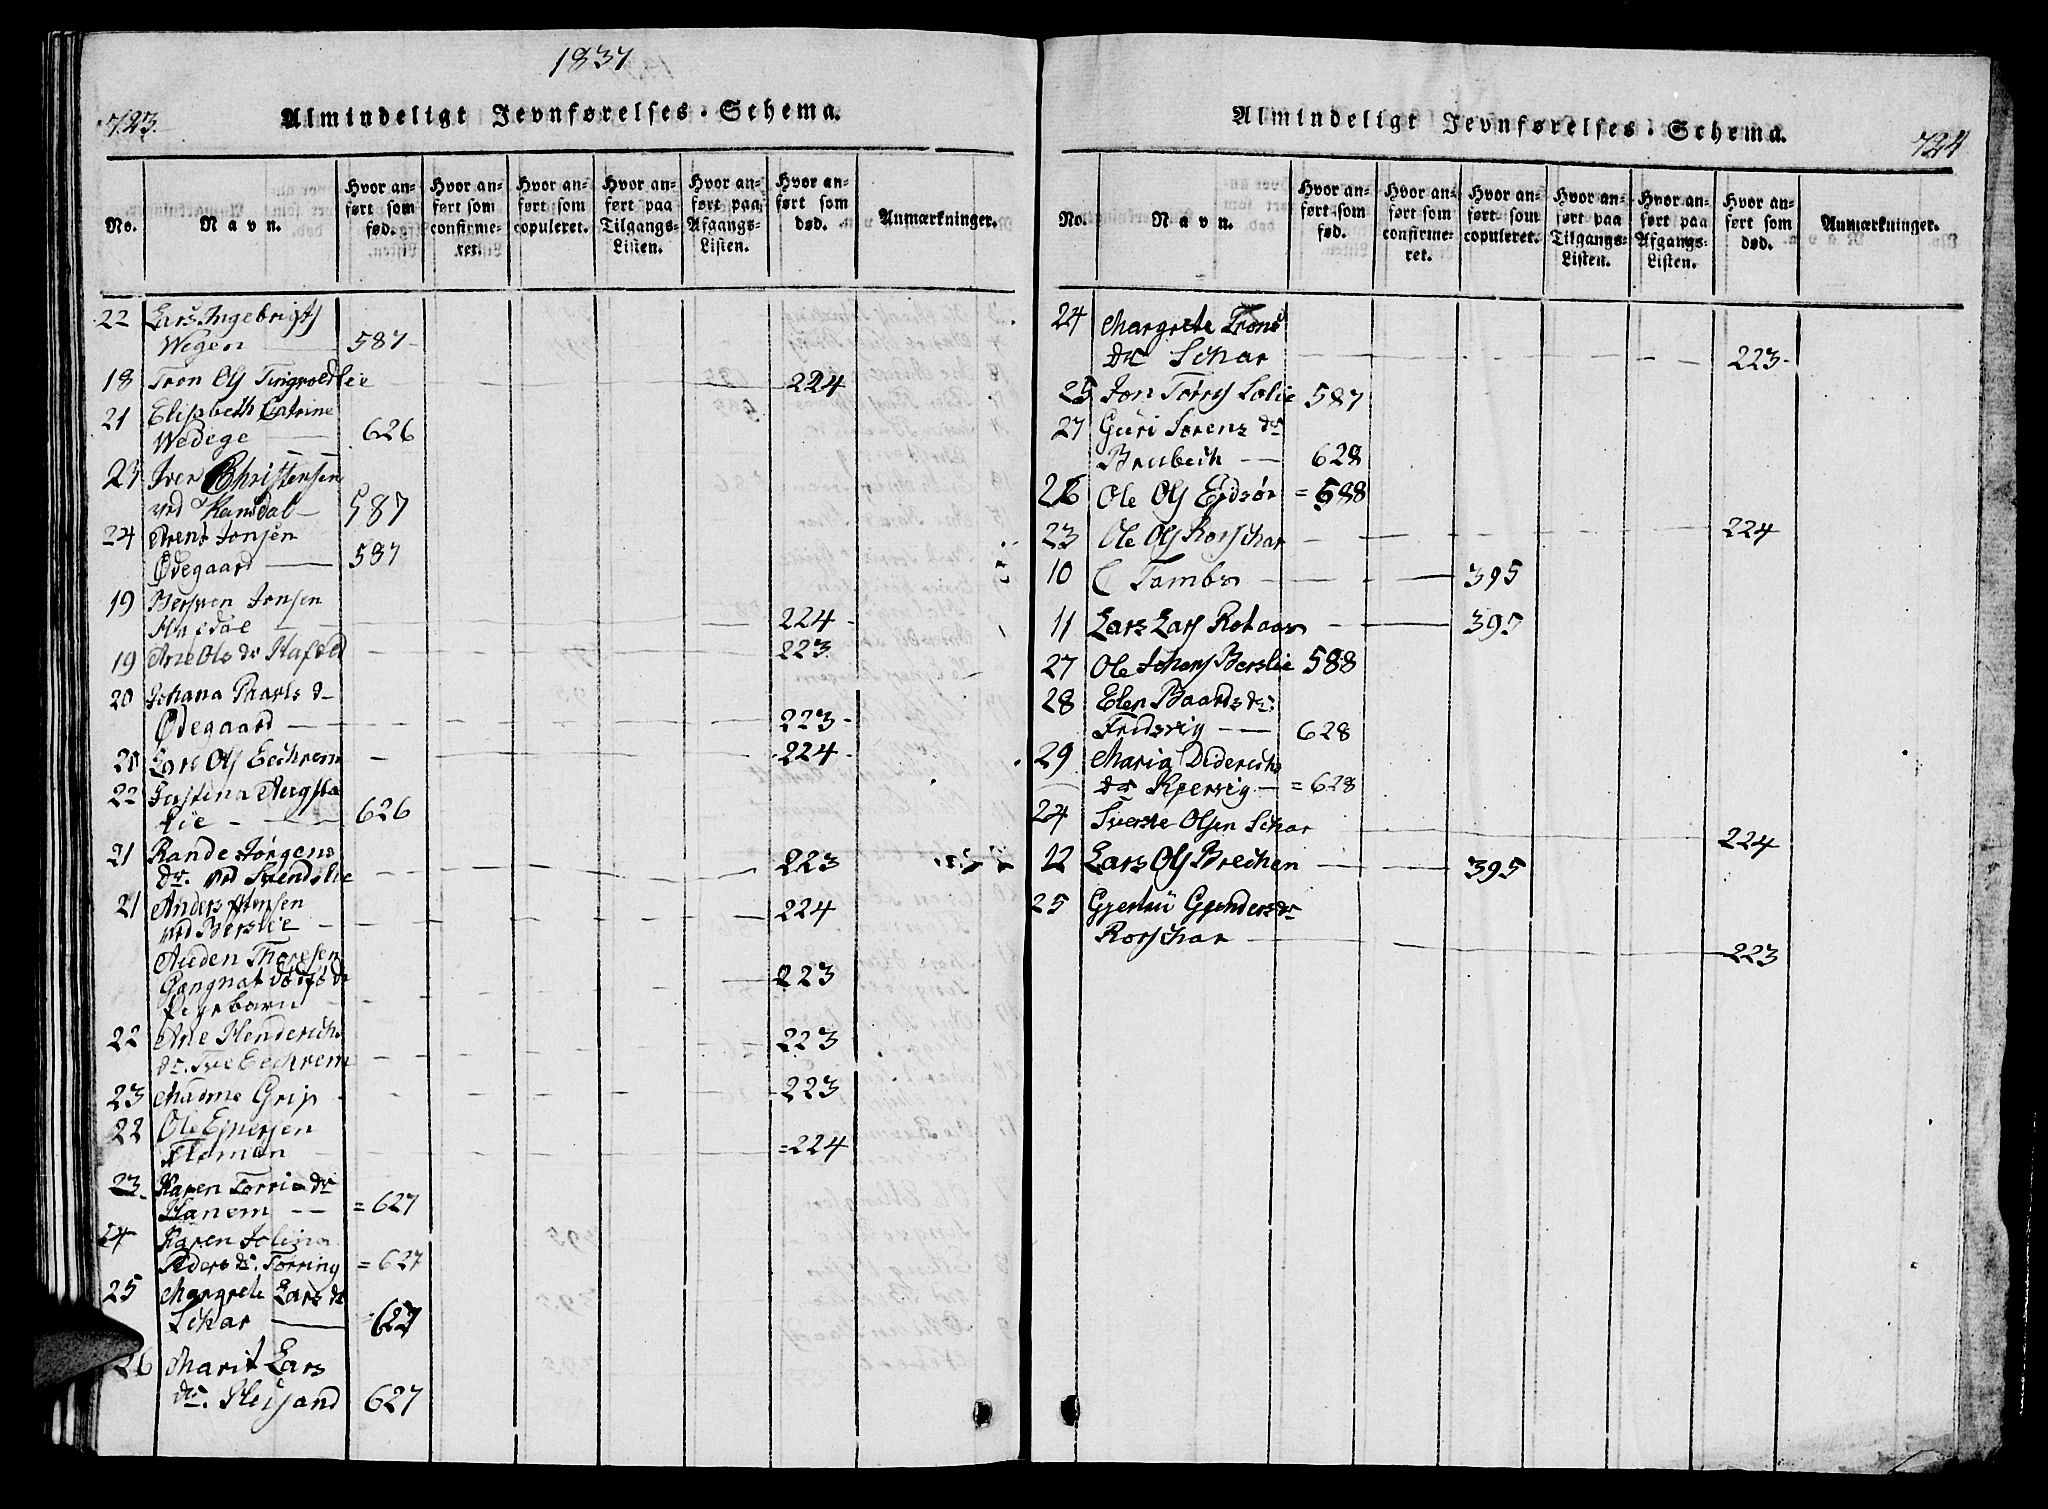 1837
723.
Almindeligt Jevnførelses-Schema.
No.
Navn.
Hvor anført som fød.
Hvor anført som confirmeret.
Hvor anført som copuleret.
Hvor anført paa Tilgangs-Listen.
Hvor anført paa Afgangs-Listen.
Hvor anført som død.
Anmærkninger.
22 Lars Ingebrigts
Wegen 587
18 Tron Ols Tingvoldlie 224
21 Elisabeth Catrine
Wedege 626
23 Iver Christensen
ved Kansdal 587
24 Arent Jonsen
Ødegaard 587
19 Bersven Jonsen
224
19 Ane Ols dr 223
20 Johana Paavls d
Ødegaard 223
20 Lars Ols Eechrem 224
22 Justina Augsta
Lie 626
21 Rande Jørgens
dr. ved Svendslie 223
21 Anders
ved Berslie 224
Auden Thoresen
Gangnat dødfs dr
Pigebarn 223
22 Ane Henderichs
dr. Eechrem 223
23 Madme Grip 223
22 Ole Ejnersen
Flemen =224
23. Karen Torris dr
Hanem =627
24 Karen Jolina
Peders dr. Tørring =627
25 Margrete Lars dr
Schar 627
26 Marit Lars
dr. Heisand 627
Almindeligt Jevnførelses-Schema.
724
No.
Navn.
Hvor anført som fød.
Hvor anført som confirmeret.
Hvor anført som copuleret.
Hvor anført paa Tilgangs-Listen.
Hvor anført paa Afgangs-Listen.
Hvor anført som død.
Anmærkninger.
24 Margrete Trons
dr Schar 223
25 Jon Torris Solie 587
27 Guri Sorens dr
Brubech 628
26 Ole Ols Ejdsør =588
23 Ole Ols Rorschar 224
10 C Tambs 395
11 Lars Lars Rotaas 395
27 Ole Johans Berslie 588
28 Elen Baards dr.
Fridsvig 628
29 Maria Diderichs
dr Kjervig =628
24 Sverke Olsen Schar 224
12 Lars Ols Brechen 395
25 Gjertrü Gunders dr
Rorschar 223